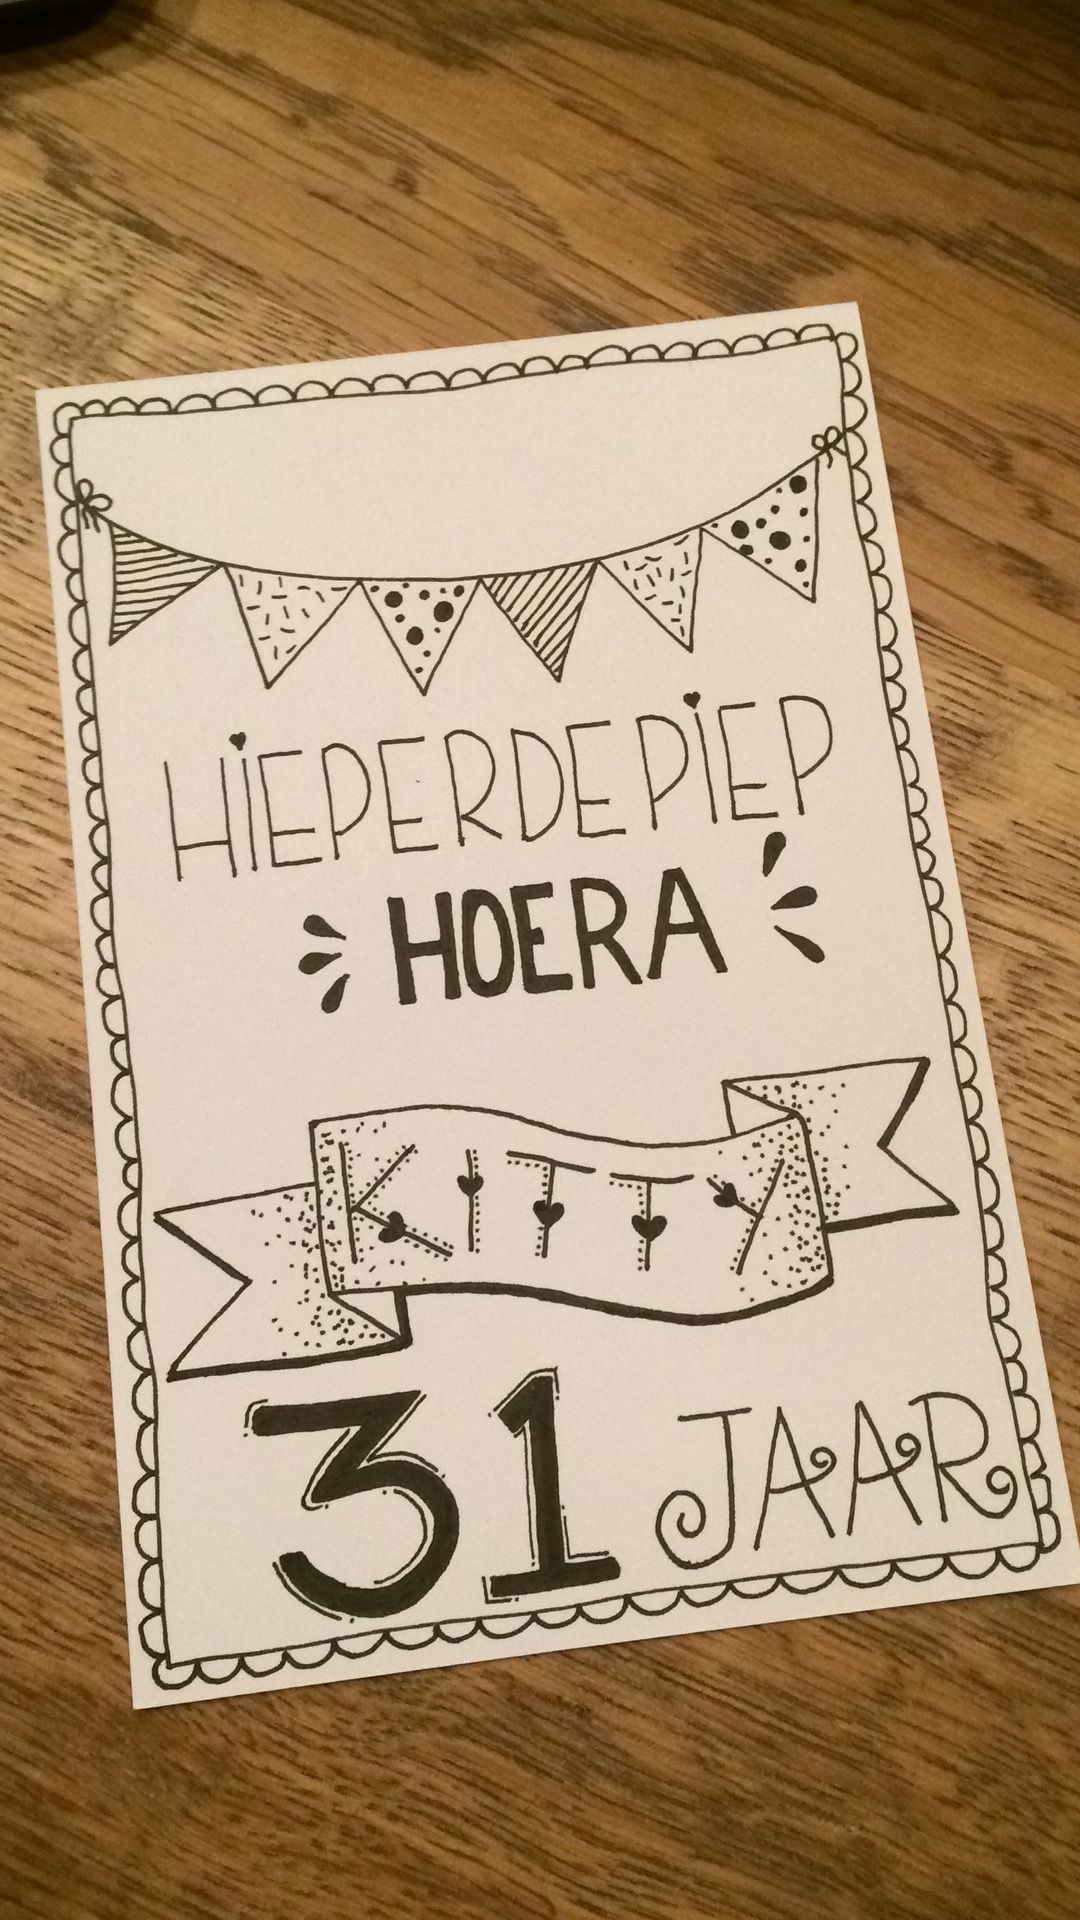 HIEPERDEPIEP
HOERA
KITTY
31 JAAR